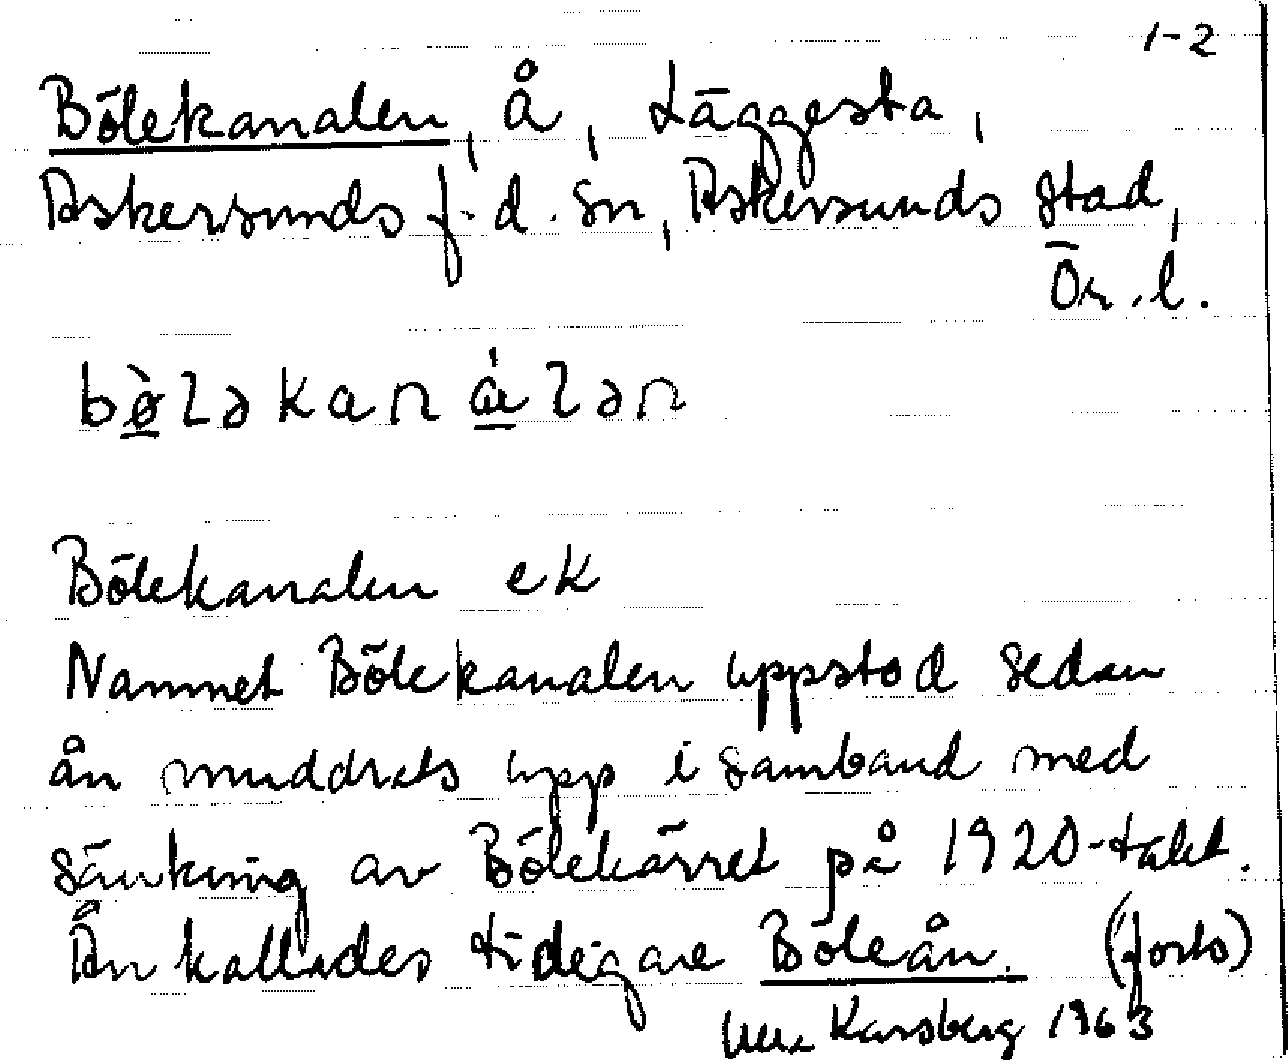 1-2
Bölekanalen, å, Läggesta,
Askersunds f.d. sn, Askersunds stad,
Ör.l.
bø̀lǝkanálǝn
Bölekanalen ek
Namnet Bölekanalen uppstod sedan
ån muddrats upp i samband med
sänkning av Bölekärret på 1920-talet.
Ån kallades tidigare Böleån. (forts)
Karsberg 1963